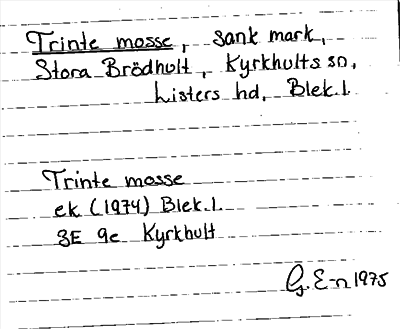 Trinte mosse, sank mark,
Stora Brödhult, Kyrkhults sn,
Listers hd, Blek. l.
Trinte mosse
ek (1974) Blek. l.
3E 9e Kyrkhult
G. E-n 1975